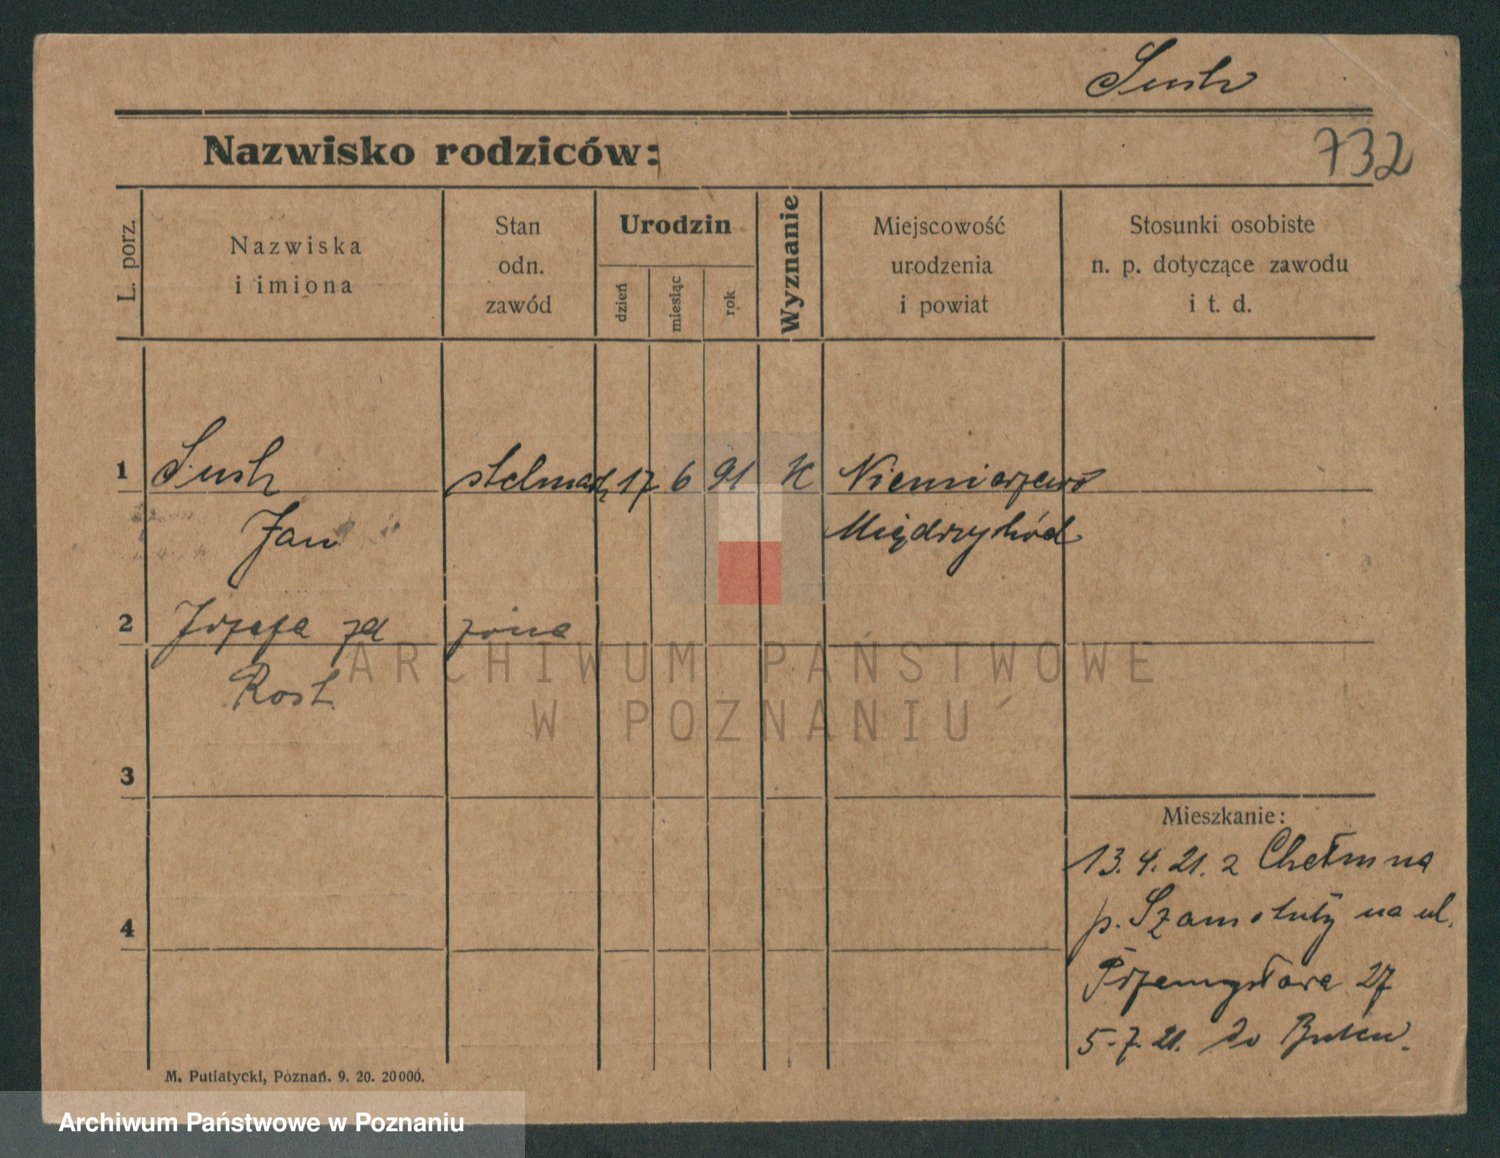 Sush
Nazwisko rodziców:
732
L. porz.
Nazwiska
i imiona
Stan
odn.
zawód
Urodzin
dzień
miesiąc
rok
Wyznanie
Miejscowość
urodzenia
i powiat
Stosunki osobiste
n. p. dotyczące zawodu
i t. d.
1 stelmach 17 6 91 K
Jan Międzychód
2 Józefa zd żona
3
4
Mieszkanie:
13. 4. 21. z Chełmna
p. Szamotuły na ul.
Przemysłowa 27
5. 7. 21. do
M. Putiatycki, Poznań. 9. 20. 20000.
ARCHIWUM PAŃSTWOWE
W POZNANIU
Archiwum Państwowe w Poznaniu